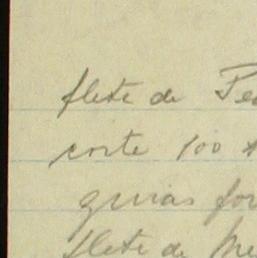 flete de Pe
corte 100
guias for
flete de Me